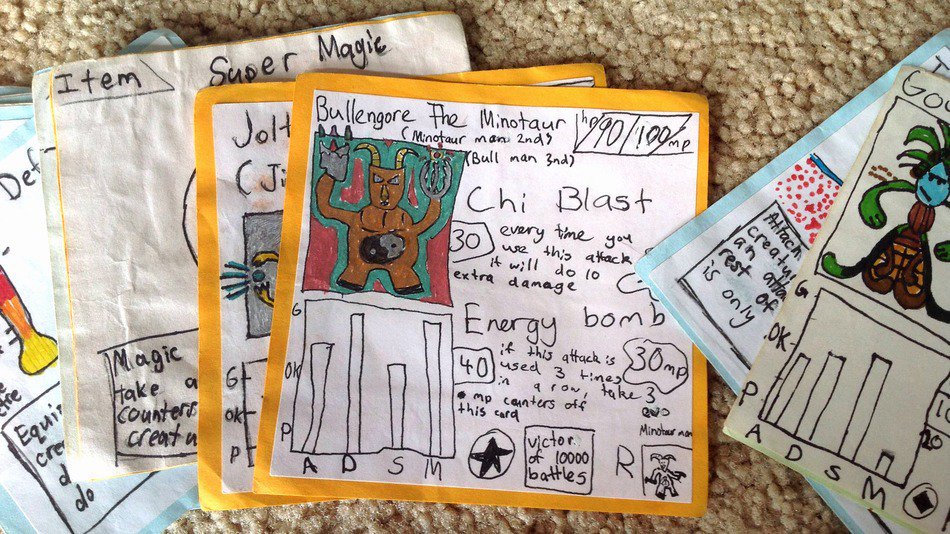 Def
Equi
cre
d
do
Item
Super Magic
Magic
take a
counters
creatu
Jolt
(Ji
G
OK
P
Bullengore The Minotaur
(Minotaur man 2nd)
(Bull man 3nd)
hp/90/100/mp
Chi Blast
30
every time you
use this attack
it will do 10
extra damage
Energy bomb
40
if this attack is
used 3 times
in a row, take 3
mp counters off
this card
30 mp
G
OK
P
A D S M
victor
of 10000
battles
R
Minotaur man
Attack
creatu
an atta
rest of
is only
Go
G
OK
P
A D S M
20